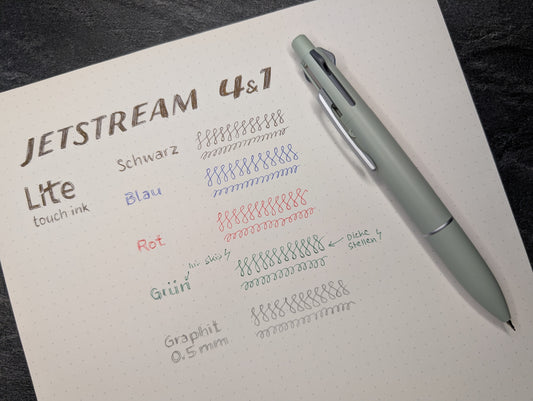 JETSTREAM 4&1
Lite
touch ink
Schwarz
Blau
Rot
Grün
Dicke
Stellen
Graphit
0.5 mm